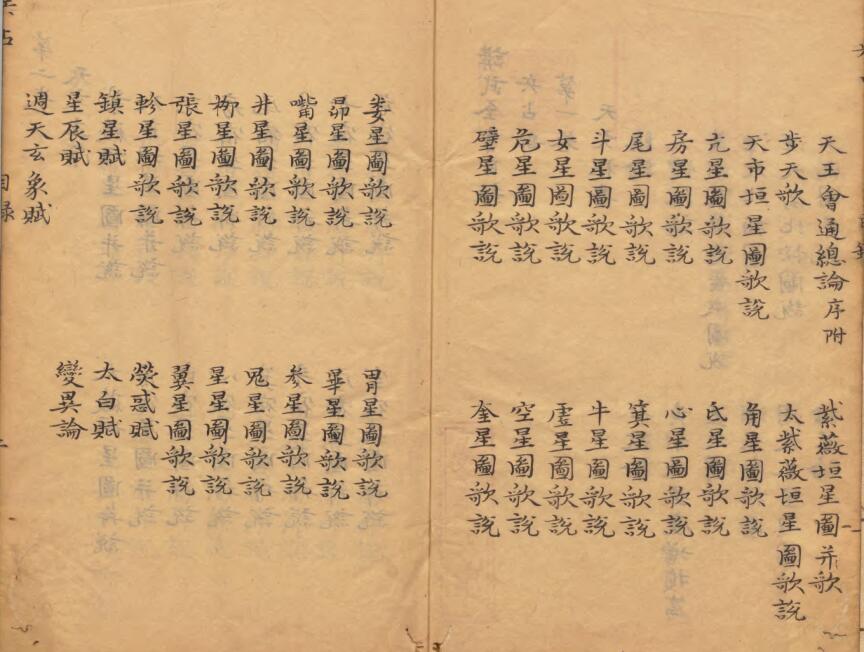 天王會通總論序附 紫薇垣星圖并歌
步天歌 太紫薇垣星圖歌說
天市垣星圖歌說 角星圖歌說
亢星圖歌說 氐星圖歌說
房星圖歌說 心星圖歌說
尾星圖歌說 箕星圖歌說
斗星圖歌說 牛星圖歌說
女星圖歌說 虛星圖歌說
危星圖歌說 空星圖歌說
壁星圖歌說 奎星圖歌說
婁星圖歌說 胃星圖歌說
昴星圖歌說 畢星圖歌說
嘴星圖歌說 參星圖歌說
井星圖歌說 鬼星圖歌說
柳星圖歌說 星星圖歌說
張星圖歌說 翼星圖歌說
軫星圖歌說 熒惑賦
鎮星賦 太白賦
星辰賦 變異論
週天玄象賦